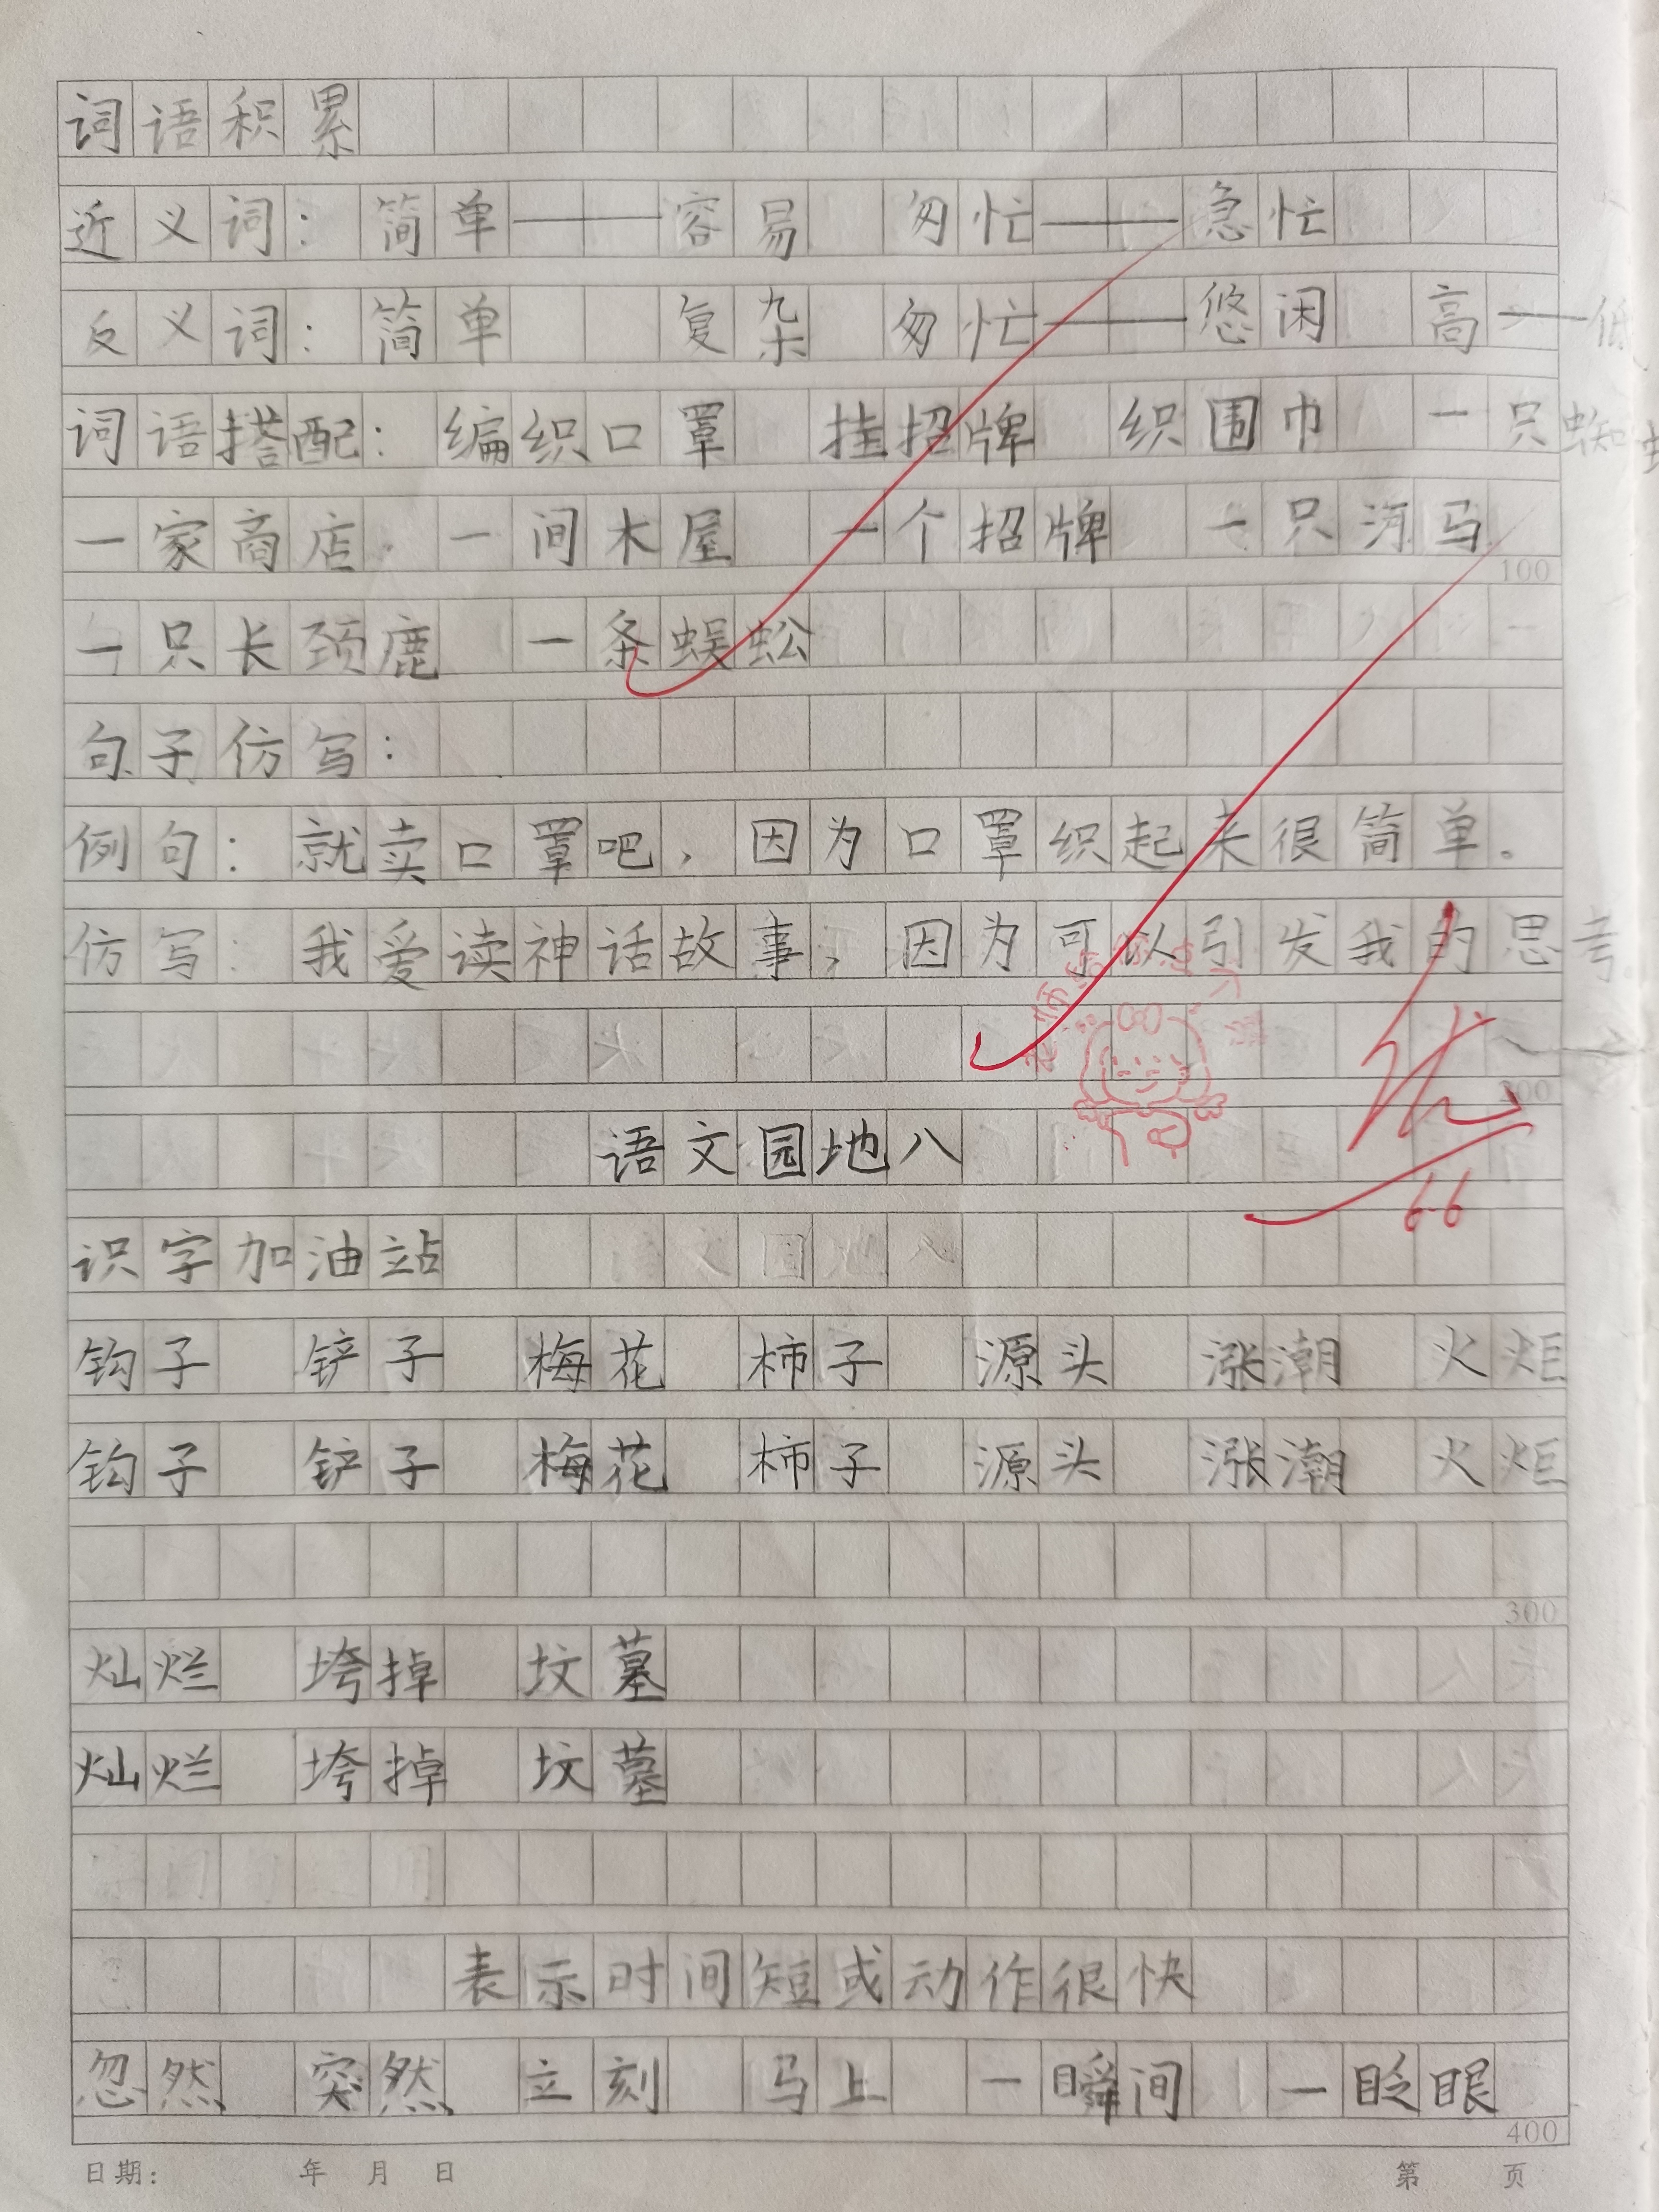 词语积累
近义词：简单——容易 匆忙——急忙
反义词：简单 复杂 匆忙——悠闲 高——低
词语搭配：编织口罩 挂招牌 织围巾 一只蜘
一家商店 一间木屋 一个招牌 一只河马
100
一只长颈鹿 一条蜈蚣
句子仿写：
例句：就卖口罩吧，因为口罩织起来很简单。
仿写：我爱读神话故事，因为可以引发我的思考。
优
200
语文园地八
6.6
识字加油站
钩子 铲子 梅花 柿子 源头 涨潮 火炬
钩子 铲子 梅花 柿子 源头 涨潮 火炬
300
灿烂 垮掉 坟墓
灿烂 垮掉 坟墓
表示时间短或动作很快
忽然 突然 立刻 马上 一瞬间 一眨眼
400
日期： 年 月 日 第 页